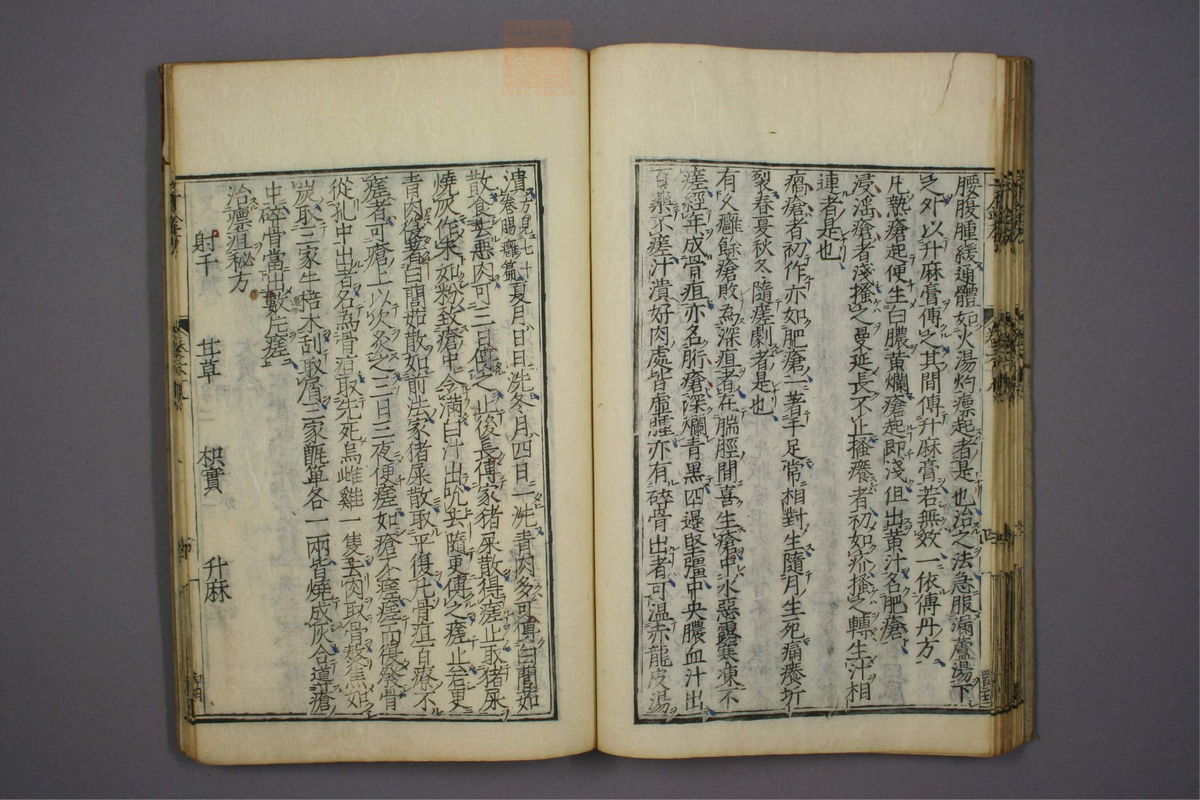 腰腹腫緩通體如火湯灼瘭起者是也治之法急服漏蘆湯下
之外以升麻膏傅之其間傅升麻膏若無效一依傅丹方
凡熱瘡起便生白膿黄爛瘡起即淺但出黄汁名肥瘡
浸淫瘡者淺搔之曼延長不止搔癢者初如疥搔之轉生汁相
連者是也
瘑瘡者初作亦如肥瘡一著手足常相對生隨月生死痛癢坼
裂春夏秋冬隨瘥劇者是也
有久癰餘瘡敗為深疽者在腨脛間喜生瘡中水惡露寒凍不
瘥經年成骨疽亦名胻瘡深爛青黑四邊堅彊中央膿血汁出
百藥不瘥汁潰好肉處皆虚腫亦有碎骨出者可温赤龍皮湯
漬方見七十卷腸癰篇夏月日日洗冬月四日一洗青肉多可傅白䕡茹
散食去惡肉可三日傅之止後長傅家猪屎散得瘥止取猪屎
燒作末如粉致瘡中令滿白汁出吮去隨更傅之瘥止若更
青肉傅著白䕡茹散如前法家猪屎散取平復凡骨疽百療不
瘥者可瘡上以次灸之三日三夜便瘥如瘡不瘥瘥而復發骨
從孔中出者名為骨疽取先死烏雌雞一隻去肉取骨熬焦如
炭取三家牛棓木刮取屑三家甑箄各一兩皆燒成灰合導瘡
中碎骨當出數片瘥
治瘭疽秘方
射干 甘草 枳實 升麻